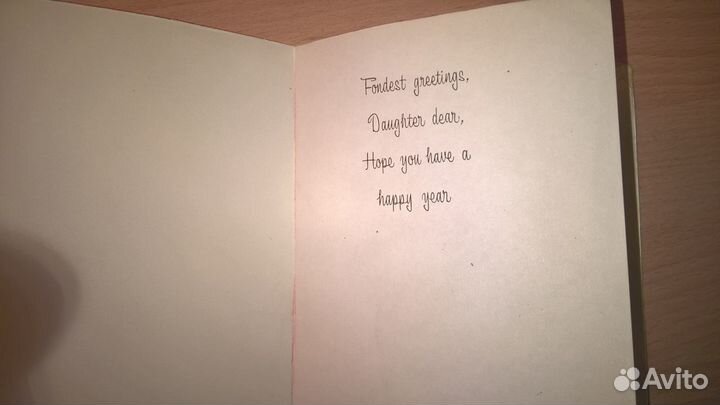 Fondest greetings,
Daughter dear,
Hope you have a
happy year
Avito